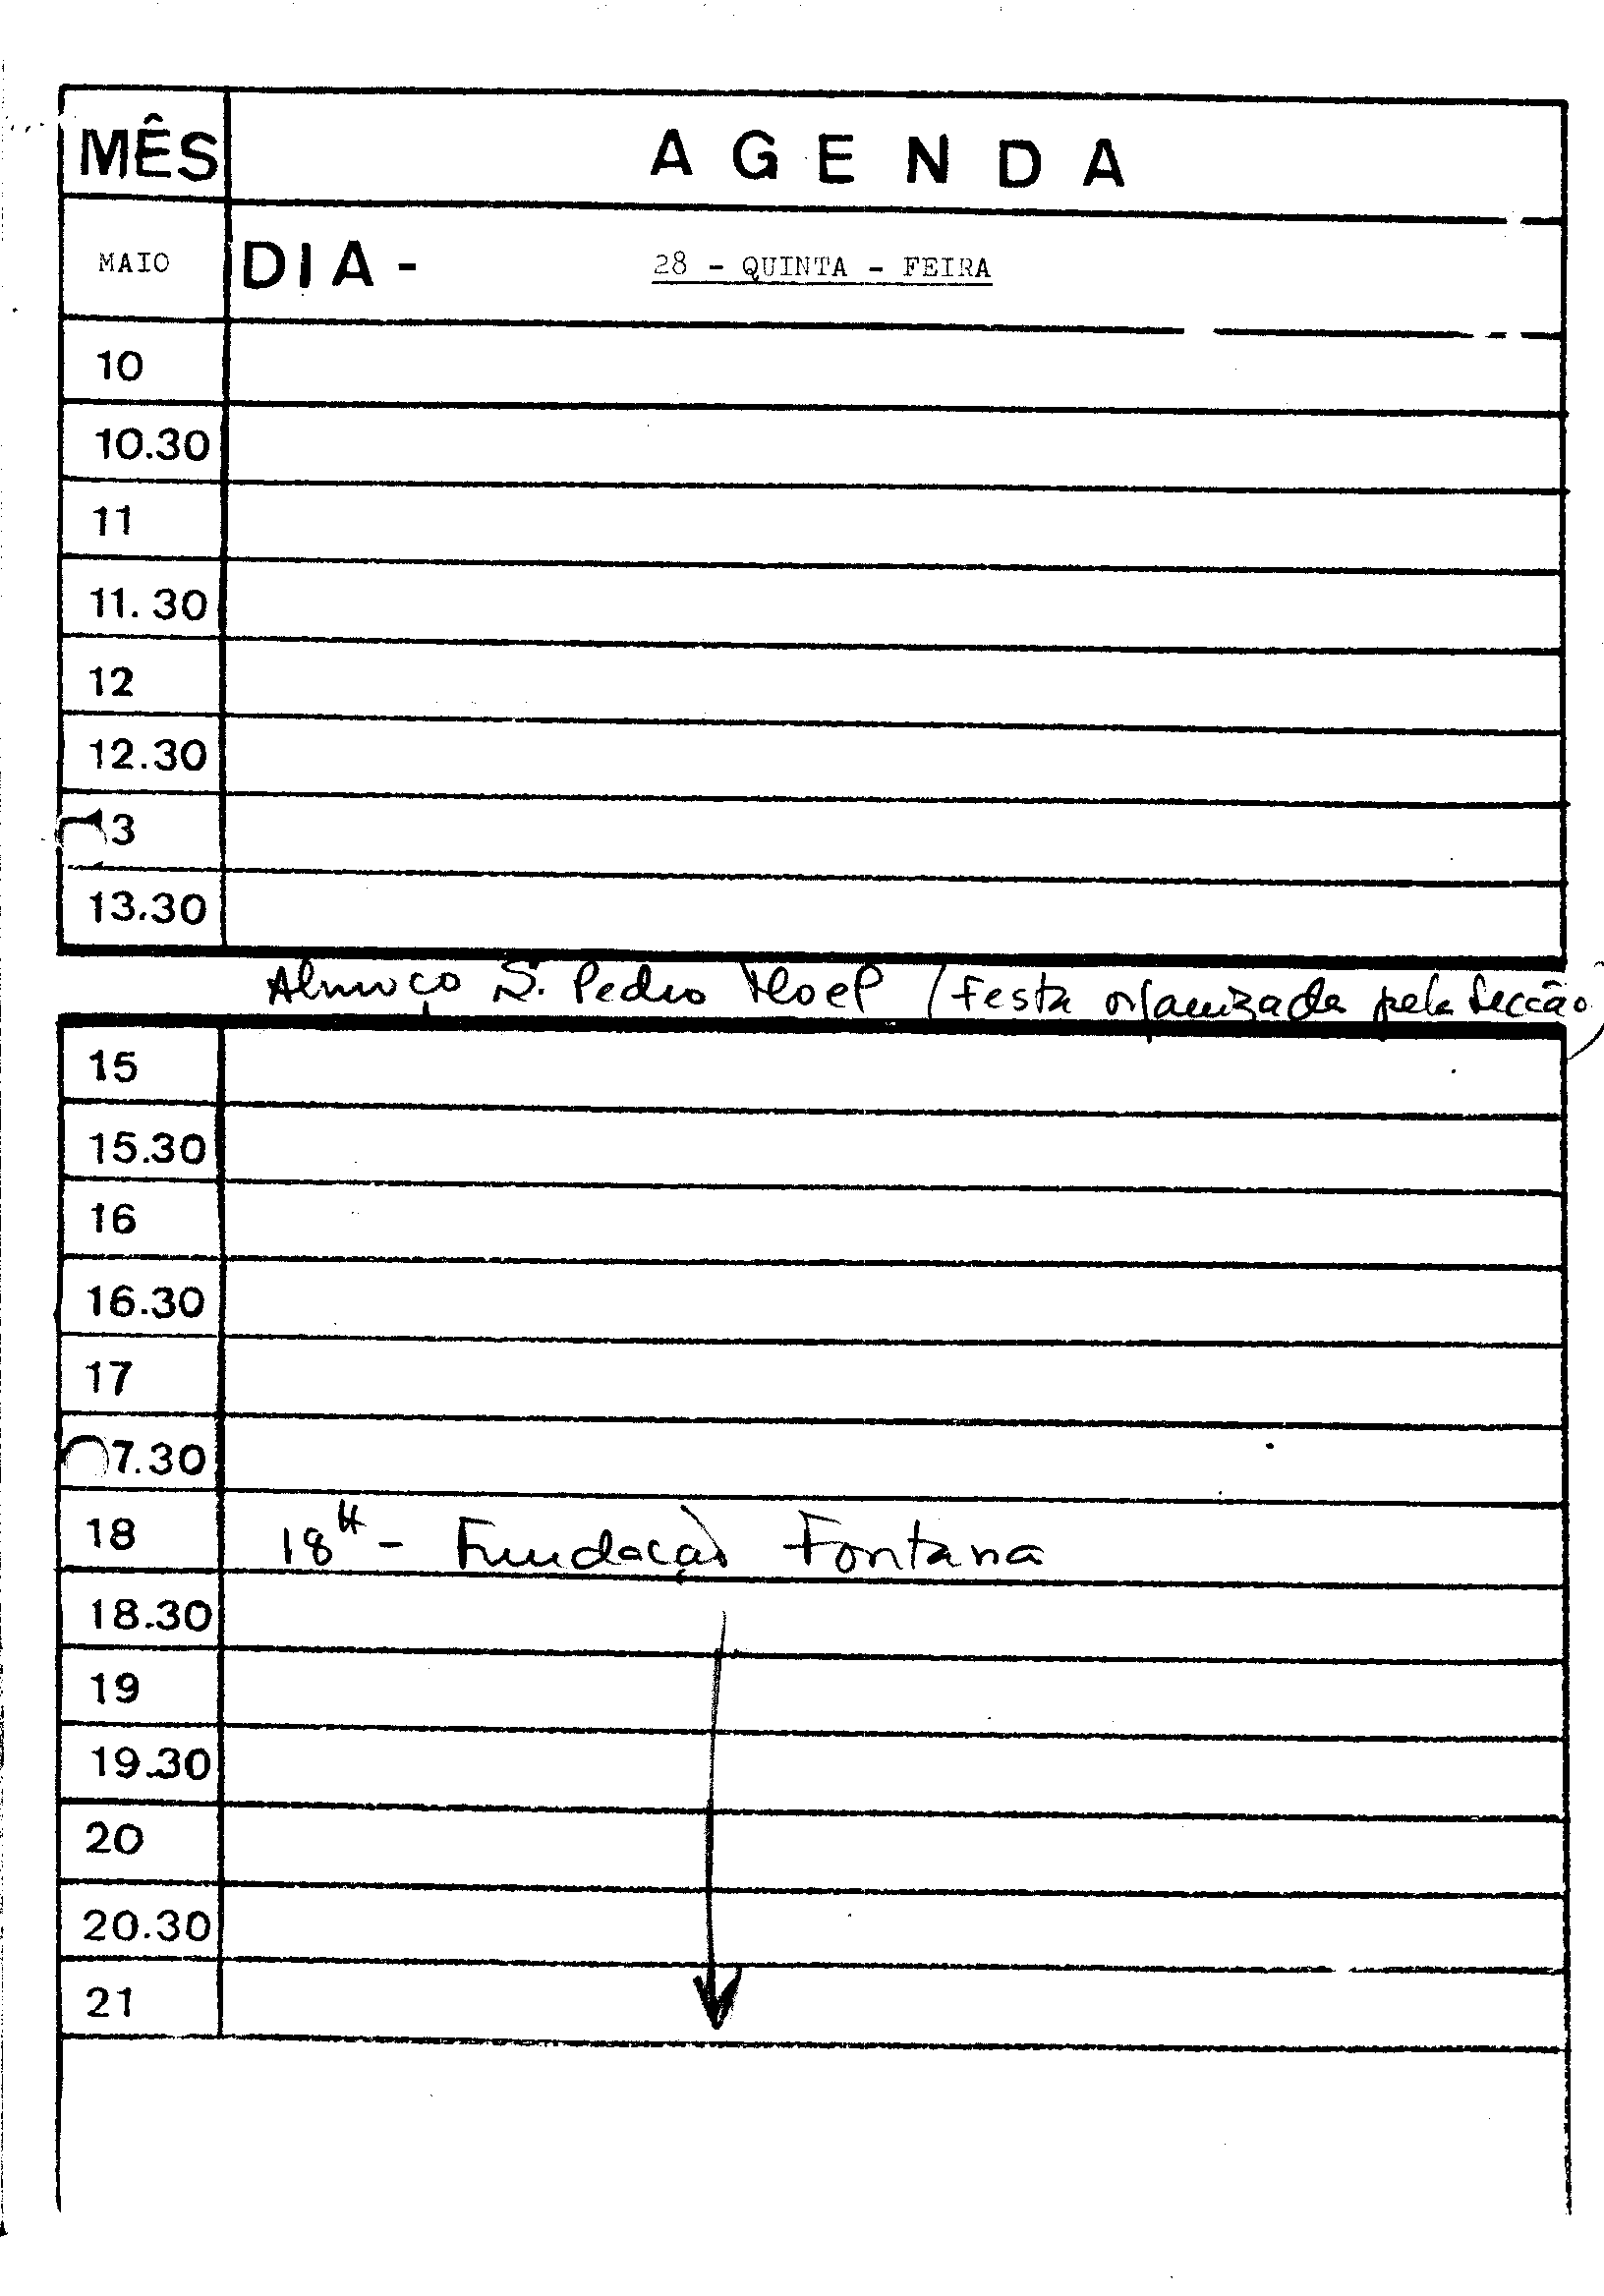 MÊS AGENDA
MAIO DIA- 28 - QUINTA - FEIRA
10
10.30
11
11.30
12
12.30
13
13.30
Almoço S. Pedro (Festa organizada pela Secção)
15
15.30
16
16.30
17
7.30
18 18H - Fundação Fontana
18.30
19
19.30
20
20.30
21